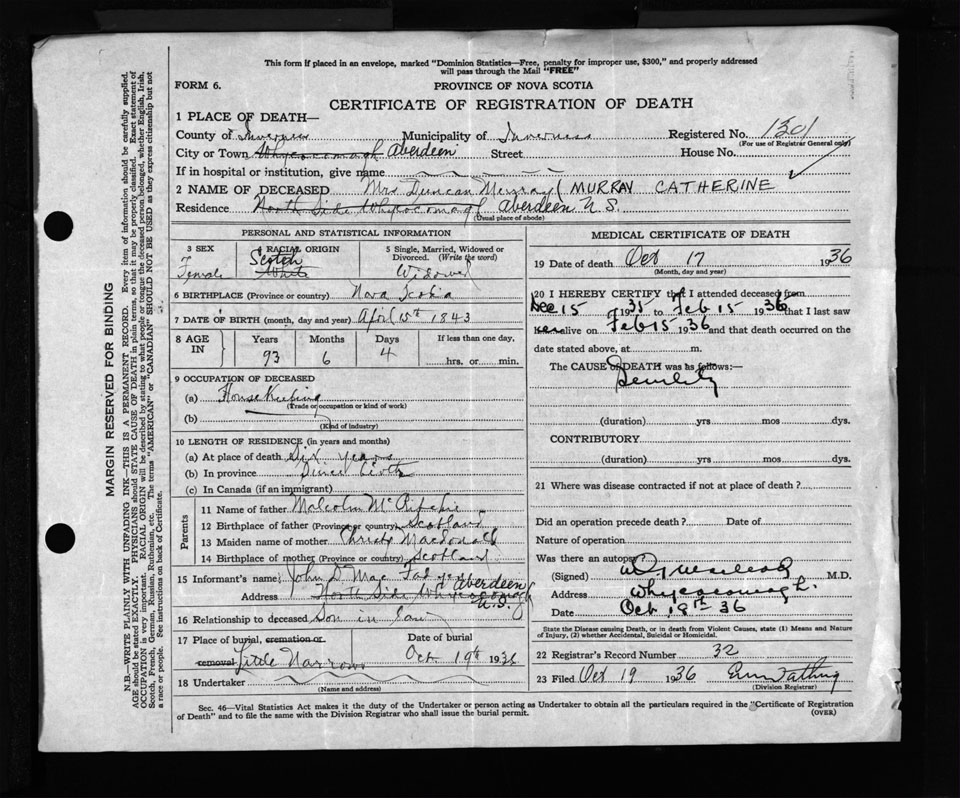 This form if placed in an envelope, marked "Dominion Statistics—Free, penalty for improper use, $300," and properly addressed
will pass through the Mail "FREE"
FORM 6.
PROVINCE OF NOVA SCOTIA
CERTIFICATE OF REGISTRATION OF DEATH
1 PLACE OF DEATH—
County of Inverness Municipality of Inverness Registered No. 1301
(For use of Registrar General only)
City or Town Whycocomagh Aberdeen Street House No.
If in hospital or institution, give name
2 NAME OF DECEASED Mrs Duncan Murray MURRAY CATHERINE
Residence North Side Whycocomagh Aberdeen N.S.
(Usual place of abode)
PERSONAL AND STATISTICAL INFORMATION
3 SEX 4 RACIAL ORIGIN 5 Single, Married, Widowed or Divorced. (Write the word)
F Female Scotch White Widowed
6 BIRTHPLACE (Province or country) Nova Scotia
7 DATE OF BIRTH (month, day and year) April 15th 1843
8 AGE IN Years Months Days If less than one day,
93 6 4 hrs. or min.
9 OCCUPATION OF DECEASED
(a) House Keeping
(Trade or occupation or kind of work)
(b)
(Kind of industry)
10 LENGTH OF RESIDENCE (in years and months)
(a) At place of death Six years
(b) In province Since birth
(c) In Canada (if an immigrant)
Parents
11 Name of father Malcolm
12 Birthplace of father (Province or country) Scotland
13 Maiden name of mother Christy Macdonald
14 Birthplace of mother (Province or country) Scotland
15 Informant's name John D Mac
Address North Side Whycocomagh Aberdeen N.S.
16 Relationship to deceased Son in Law
17 Place of burial, cremation or removal Date of burial
Little Narrows Oct. 19th 1936
18 Undertaker
(Name and address)
MEDICAL CERTIFICATE OF DEATH
19 Date of death Oct 17 1936
(Month, day and year)
20 I HEREBY CERTIFY that I attended deceased from
Dec 15 1935 to Feb 15 1936 that I last saw
her alive on Feb 15 1936 and that death occurred on the
date stated above, at m.
The CAUSE of DEATH was as follows:—
Senility
(duration) yrs mos dys.
CONTRIBUTORY
(duration) yrs mos dys.
21 Where was disease contracted if not at place of death?
Did an operation precede death? Date of
Nature of operation
Was there an autopsy
(Signed) M.D.
Address Whycocomagh.
Date Oct 19th 36
State the Disease causing Death, or in death from Violent Causes, state (1) Means and Nature of Injury, (2) whether Accidental, Suicidal or Homicidal.
22 Registrar's Record Number 32
23 Filed Oct 19 1936
(Division Registrar)
Sec. 46—Vital Statistics Act makes it the duty of the Undertaker or person acting as Undertaker to obtain all the particulars required in the "Certificate of Registration
of Death" and to file the same with the Division Registrar who shall issue the burial permit.
(OVER)
MARGIN RESERVED FOR BINDING
N.B.—WRITE PLAINLY WITH UNFADING INK—THIS IS A PERMANENT RECORD. Every item of information should be carefully supplied.
AGE should be stated EXACTLY. PHYSICIANS should STATE CAUSE OF DEATH in plain terms, so that it may be properly classified. Exact statement of
OCCUPATION is very important. RACIAL ORIGIN will be described by stating to what people or tongue the deceased person belonged, whether English, Irish,
Scotch, French, German, Russian, Ruthenian, etc. The terms "AMERICAN" or "CANADIAN" SHOULD NOT BE USED as they express citizenship but not
a race or people. See instructions on back of Certificate.